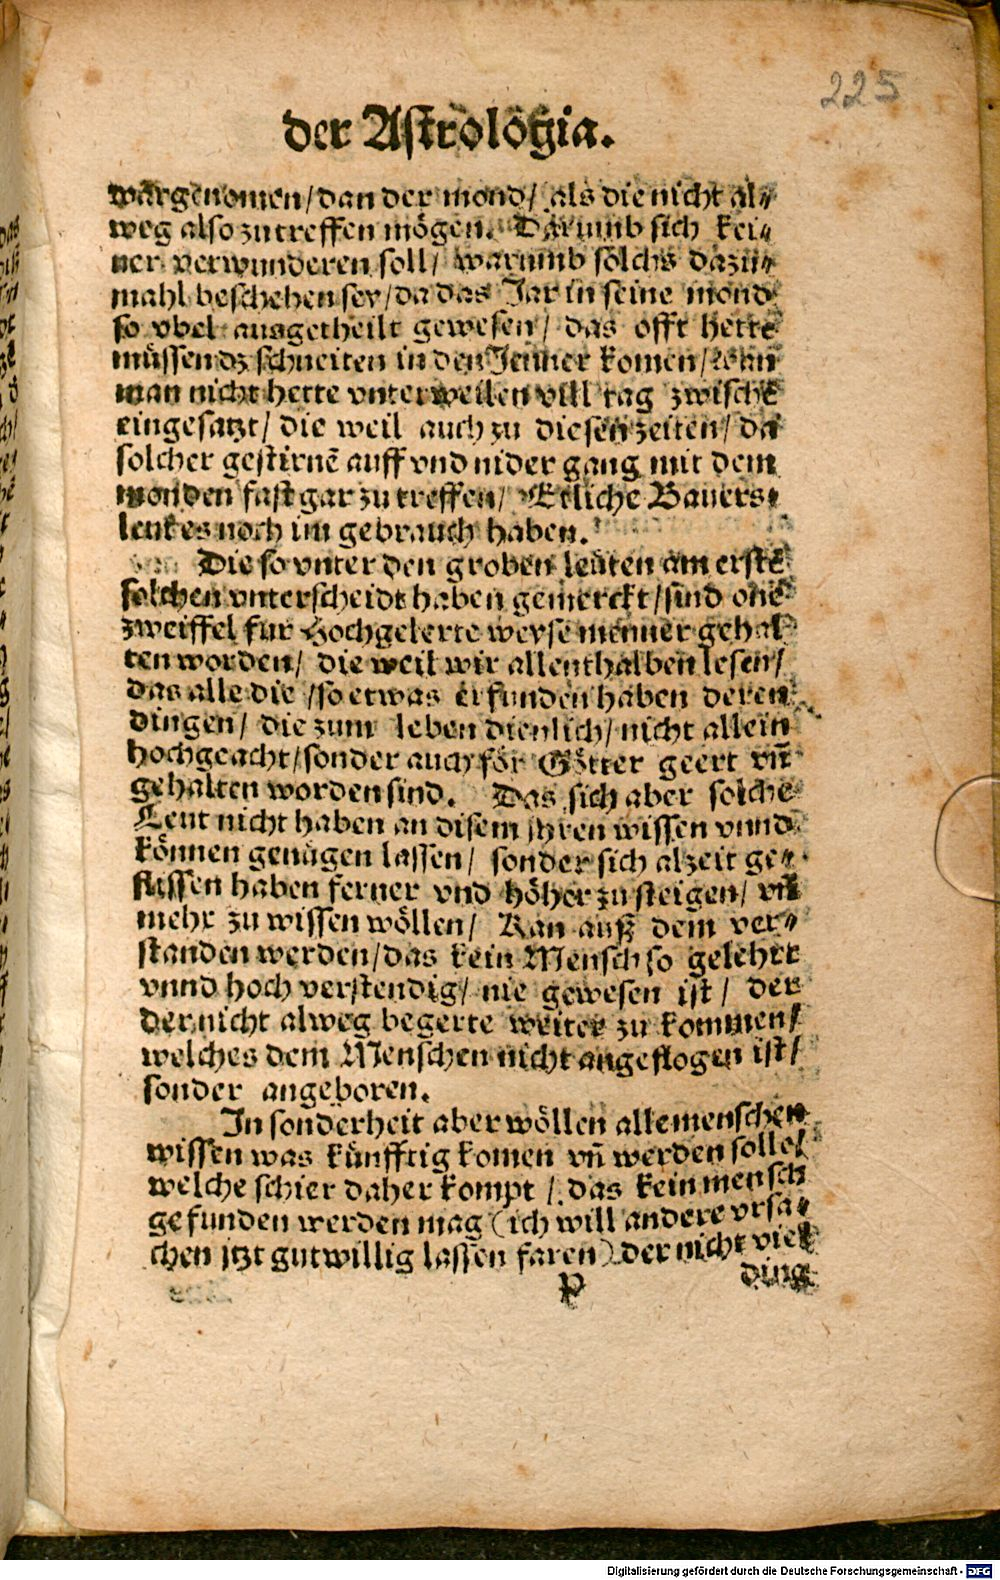 225
der Astrologia.
wargenomen/ dan der mond/ als die nicht al⸗
weg also zu treffen mögen. Darumb sich kei⸗
ner verwunderen soll/ warumb solchs dazu⸗
mahl beschehen sey/ da das Jar in seine mond
so vbel ausgetheilt gewesen/ das offt hette
müssen dz schneiten in den Jenner komen/ wen
man nicht hette vnterweilen vill tag zwischē
eingesatzt/ die weil auch zu diesen zeiten/ da
solcher gestirnē auff vnd nider gang mit dem
monden fast gar zu treffen/ Etliche Bauers⸗
leut es noch im gebrauch haben.
Die so vnter den groben leüten am erstē
solchen vnterscheidt haben gemerckt/ sind onē
zweiffel fur Hochgelerte weyse menner gehal
ten worden/ die weil wir allenthalben lesen/
das alle die/ so etwas erfunden haben deren
dingen/ die zum leben dienlich/ nicht allein
hochgeacht/ sonder auch för Götter geert vñ
gehalten worden sind. Das sich aber solche
Leut nicht haben an disem jhren wissen vnnd
können genügen lassen/ sonder sich alzeit ge⸗
flissen haben ferner vnd höher zu steigen/ vñ
mehr zu wissen wöllen/ Kan auß dem ver⸗
standen werden/ das kein Mensch so gelehrt
vnnd hoch verstendig/ nie gewesen ist/ der
der nicht alweg begerte weiter zu kommen/
welches dem Menschen nicht angeflogen ist/
sonder angeboren.
In sonderheit aber wöllen alle menschen
wissen was künfftig komen vñ werden solle/
welche schier daher kompt/ das kein mensch
gefunden werden mag (ich will andere vrsa⸗
chen jtzt gutwillig lassen faren) der nicht viel
P ding
Digitalisierung gefördert durch die Deutsche Forschungsgemeinschaft - DFG